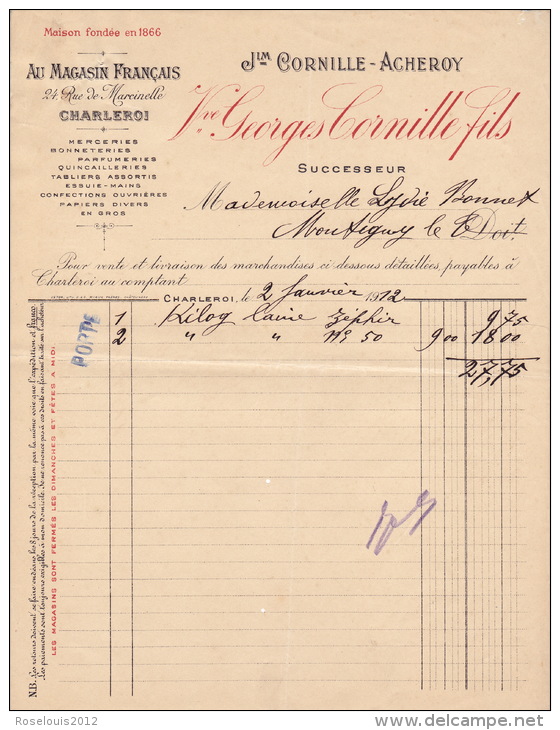 Maison fondée en 1866
AU MAGASIN FRANÇAIS
24, Rue de Marcinelle
CHARLEROI
MERCERIES
BONNETERIES
PARFUMERIES
QUINCAILLERIES
TABLIERS ASSORTIS
ESSUIE-MAINS
CONFECTIONS OUVRIÈRES
PAPIERS DIVERS
EN GROS
JIM CORNILLE-ACHEROY
Vve Georges Cornille fils
SUCCESSEUR
Mademoiselle Lydie Bonnet
Montigny le Doit.
Pour vente et livraison des marchandises ci dessous détaillées, payables à
Charleroi au comptant
CHARLEROI, le 2 Janvier 1912
1 Kilog laine Zéphir 9 75
2 " " No 50 9 00 18 00
27,75
N.B. Les retours doivent se faire endéans les 8 jours de la réception par la même voie que l'expédition et franco
Les paiements sont toujours exigibles à mon domicile.
LES MAGASINS SONT FERMÉS LES DIMANCHES ET FÊTES A MIDI
Roselouis2012
www.delcampe.net